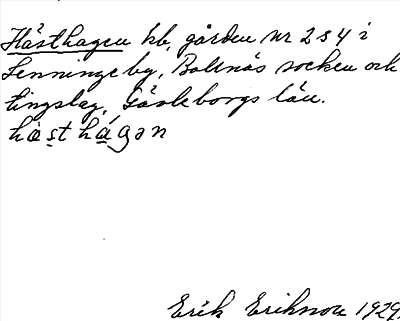 Hästhagen hb, gården nr 2 & 4 i
Lenninge by, Bollnäs socken och
tingslag, Gävleborgs län.
hæst hágən
Erik Eriksson 1929.